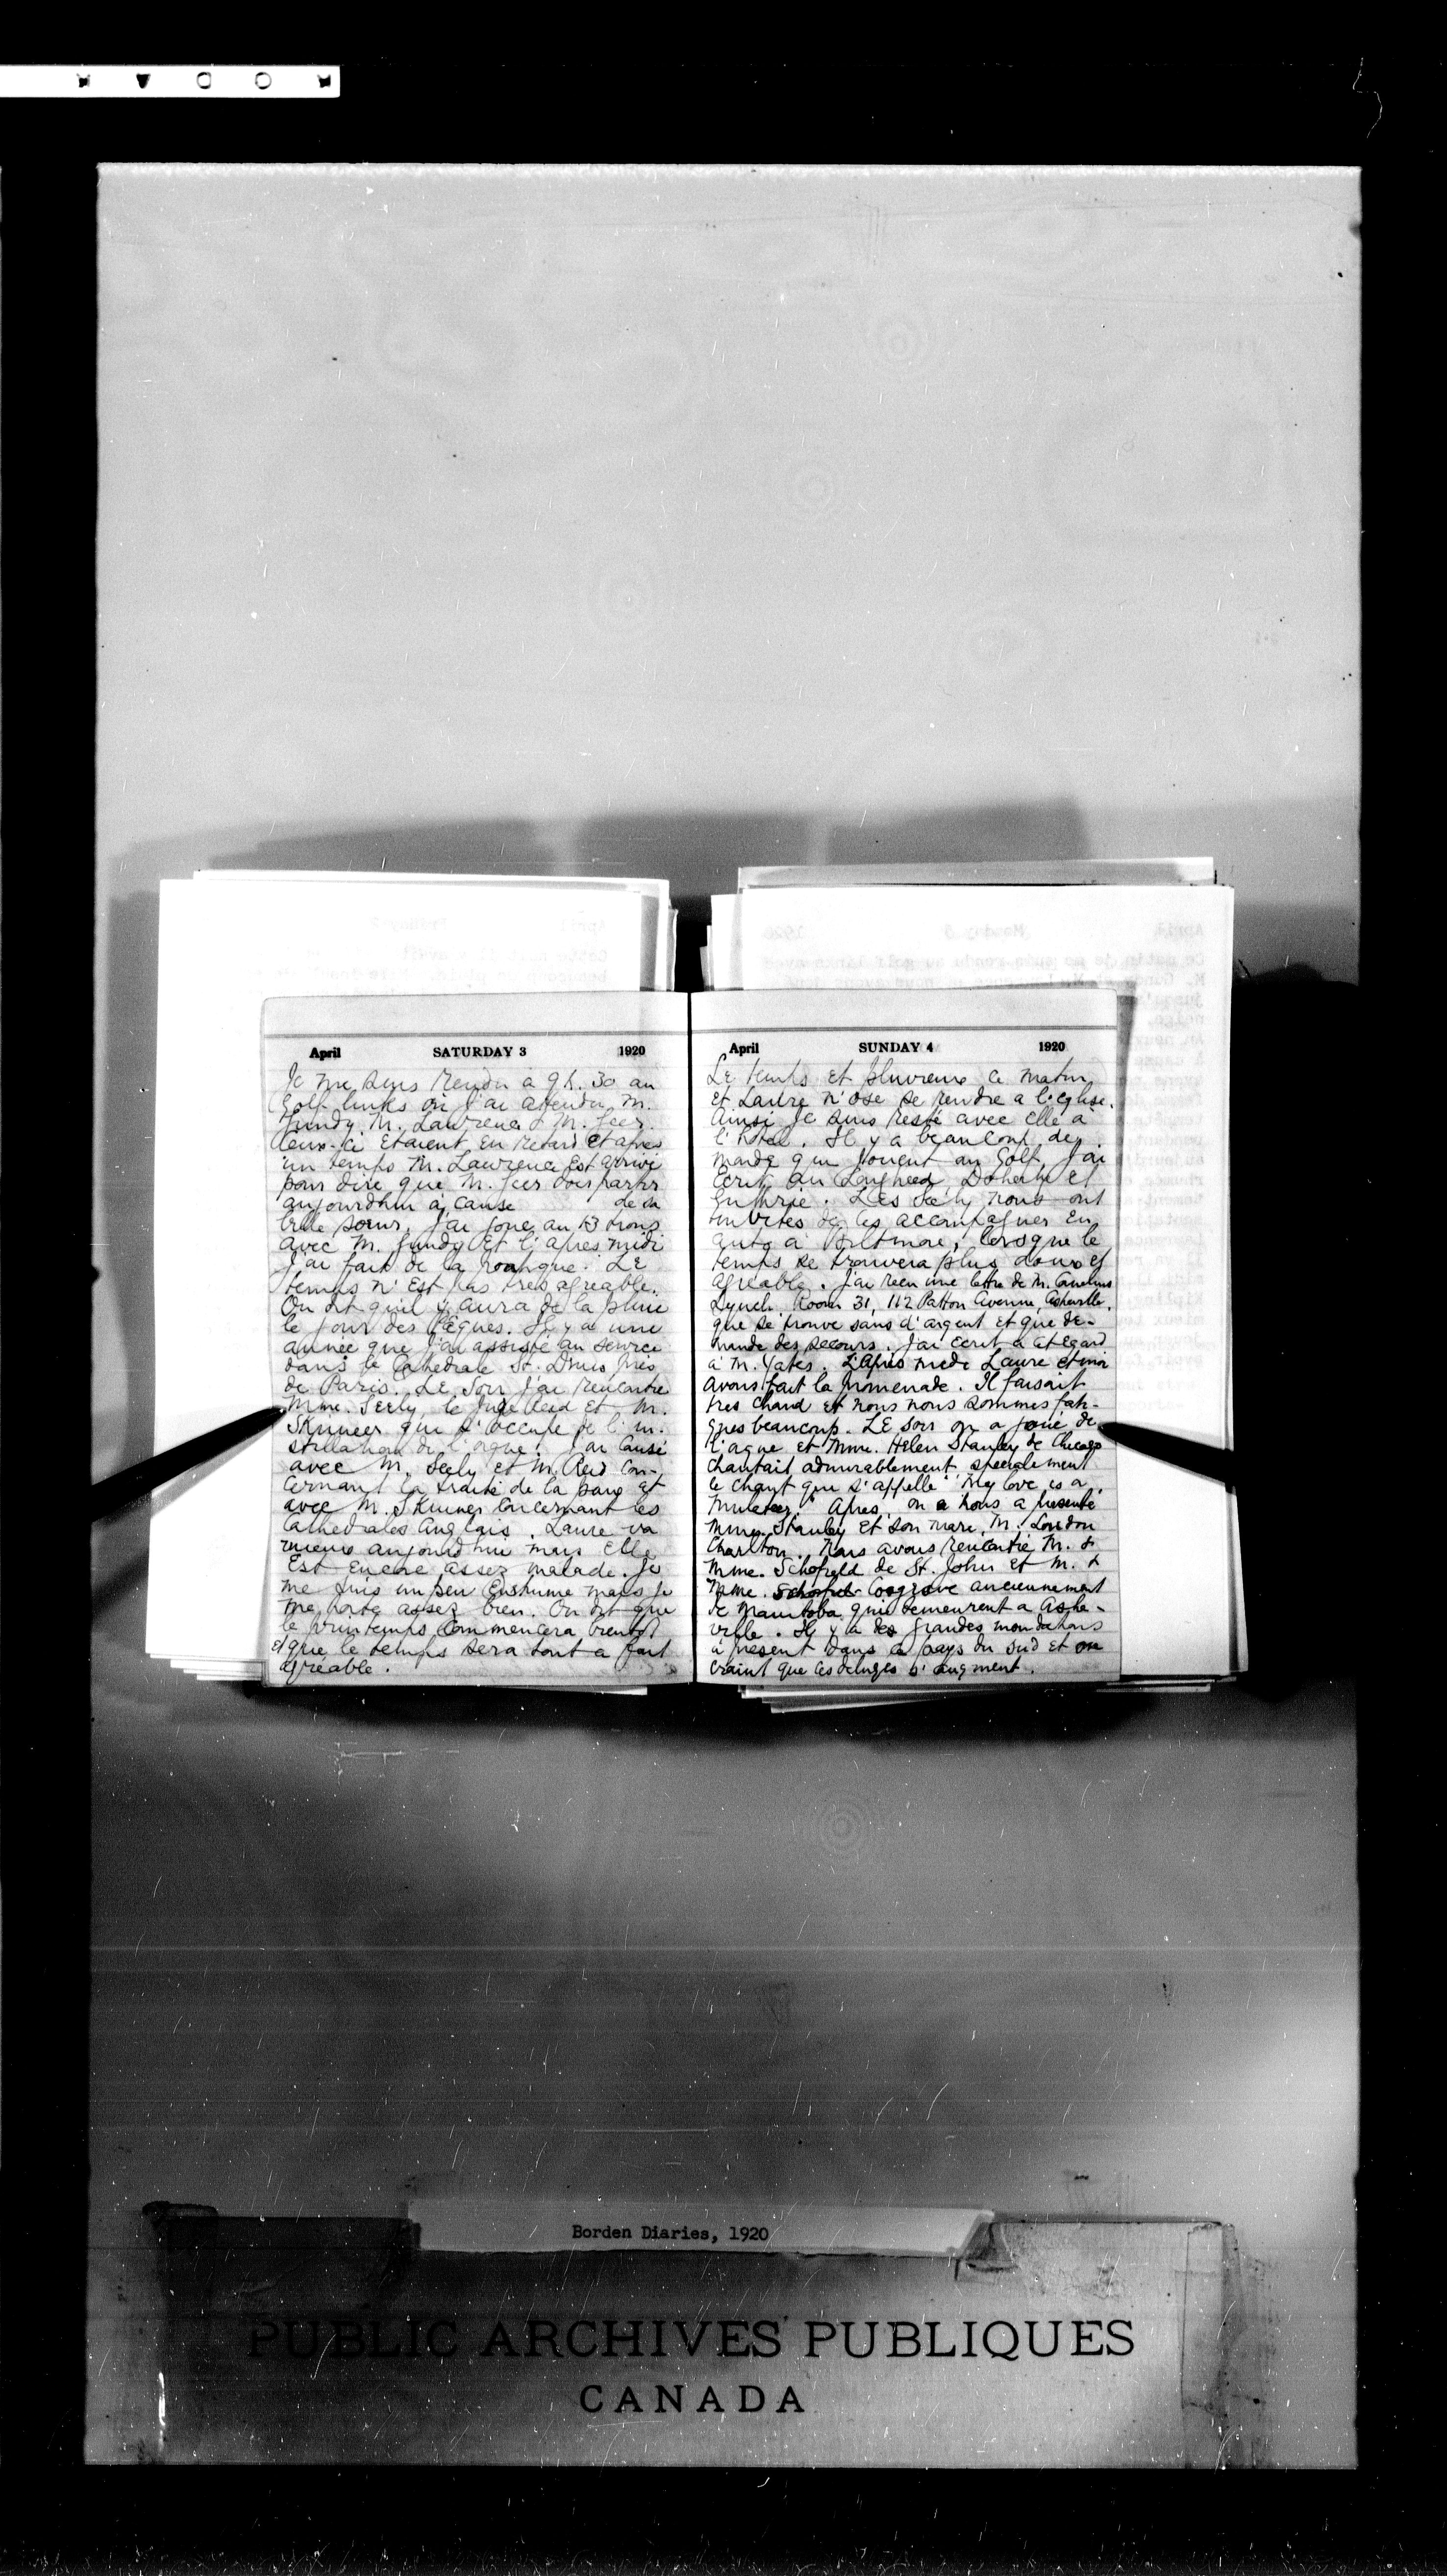 April SATURDAY 3 1920
Je me suis rendu à 9 h. 30 au
Golf links où j'ai attendu M.
Gundy, M. Lawrence & M. Geer.
Ceux-ci etaient en retard et apres
un temps M. Lawrence est arrivé
pour dire que M. Geer doit partir
aujourdhui à cause de sa
belle sœur. J'ai joué au 13 trous
avec M. Gundy et l'apres midi
j'ai fait de la
temps n'est pas tres agreable.
On dit qu'il y aura de la pluie
le jour des Pâques. Il y a une
année que j'ai assisté au service
dans le Cathedrale St. Denis près
de Paris. Le soir j'ai rencontre
Mme. Seely, le Juge Reid et M.
Skinner qui s'occupe de l'in-
stallation de l'orgue. J'ai causé
avec M. Seely et M. Reid con-
cernant la traité de la paix et
avec M. Skinner concernant les
Cathedrales Anglais. Laure va
mieux aujourdhui mais elle
est encore assez malade. Je
me suis un peu enrhume mais je
me porte assez bien. On dit que
le printemps commencera bientôt
et que le temps sera tout a fait
agreable.
April SUNDAY 4 1920
Le temps et pluvieux ce matin
et Laure n'ose se rendre a l'eglise.
Ainsi je suis resté avec elle à
l'hotel. Il y a beaucoup de
monde qui jouent au Golf. J'ai
ecrit au Lougheed, Doherty et
Guthrie. Les Seely nous ont
invites de les accompagner en
auto à Biltmore, lorsque le
temps se trouvera plus doux et
agreable. J'ai reçu une lettre de M. Cornelius
Lynch Room 31, 112 Patton Avenue, Asheville,
que se trouve sans d'argent et que de-
mande des secours. J'ai ecrit a cet egard
à M. Yates. L'Apres mede Laure et moi
avons fait la promenade. Il faisait
tres chaud et nous nous sommes fati-
gues beaucoup. Le soir on a joué de
l'ogue et Mme. Helen Stanley de Chicago
chantait admirablement specialement
le chant que s'appelle "My love is a
Muleteer." Apres, on a nous a presente
Mme. Stanley et son mari, M. Loudon
Charlton. Nous avons rencontre M. &
Mme. Schofield de St. John et M. &
Mme. Cosgrove anciennement
de Manitoba qui demeurent a Ashe-
ville. Il y a des grandes inondations
à present dans le pays du sud et on
craint que les deluges s'augment.
Borden Diaries, 1920
PUBLIC ARCHIVES PUBLIQUES
CANADA